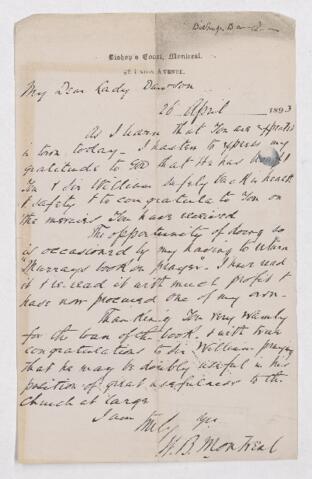 Bishop's Court, Montreal.
42 Union Avenue.
My Dear Lady Dawson
26 April 1893
As I learn that You are expected
in town, today. I hasten to express my
gratitude to God that He has brought
You & Sir William safely back in health
& safety & to congratulate You on
the mercies You have received
The opportunity of doing so
is occasioned by my having to return
Murrays book on prayer. I have read
it & re.read it with much profit &
have now procured one of my own.
Thanking You very warmly
for the loan of the book, & with true
congratulations to Sir William praying
that he may be doubly useful in his
position of great usefulness to the
Church at large
I am
truly yrs
W. B. Montreal